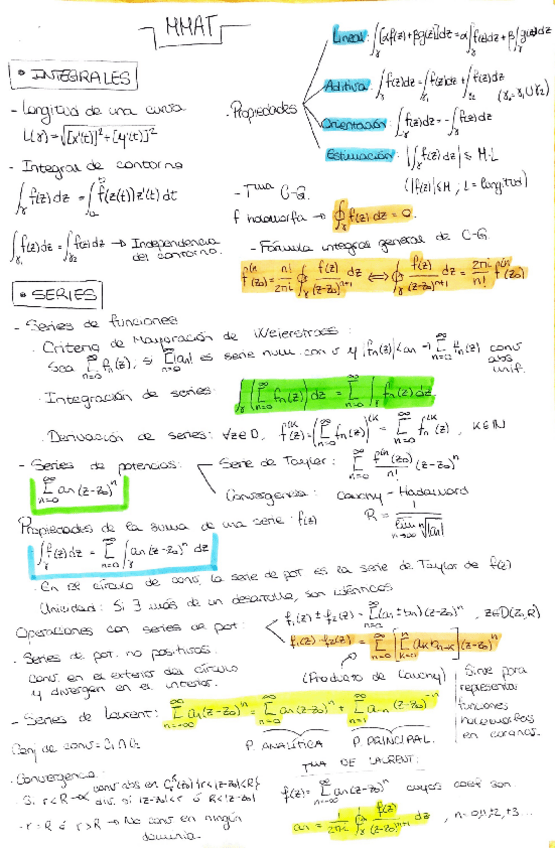 MMAT
• INTEGRALES
- Longitud de una curva
L(γ) = √[x'(t)]²+[y'(t)]²
- Integral de contorno
∫_γ f(z)dz = ∫_a^b f(z(t)) z'(t) dt
∫_γ1 f(z)dz = ∫_γ2 f(z)dz → Independencia del contorno.
- Propiedades
Lineal: ∫_γ [αf(z)+βg(z)]dz = α∫_γ f(z)dz + β∫_γ g(z)dz
Aditiva: ∫_γ f(z)dz = ∫_γ1 f(z)dz + ∫_γ2 f(z)dz
(γ = γ1 ∪ γ2)
Orientación: ∫_γ f(z)dz = -∫_γ f(z)dz
Estimación: |∫_γ f(z)dz| ≤ M·L
(|f(z)| ≤ M ; L = longitud)
- Tma C-G.
f holomorfa → ∮_γ f(z) dz = 0.
- Fórmula integral general de C-G
f^(n)(z0) = n!/2πi ∮_γ f(z)/(z-z0)^(n+1) dz ⟺ ∮_γ f(z)/(z-z0)^(n+1) dz = 2πi/n! f^(n)(z0)
• SERIES
- Series de funciones
· Criterio de Mayoración de Weierstrass:
Sea Σ_{n=0}^∞ fn(z), si Σ|an| es serie num. conv y |fn(z)| < an → Σ_{n=0}^∞ fn(z) conv abs unif.
· Integración de series: ∫_γ (Σ_{n=0}^∞ fn(z)) dz = Σ_{n=0}^∞ ∫_γ fn(z) dz
· Derivación de series: ∀z∈D, f^(k)(z) = (Σ_{n=0}^∞ fn(z))^(k) = Σ_{n=0}^∞ fn^(k)(z), K∈ℕ
- Series de potencias:
Σ_{n=0}^∞ an (z-z0)^n
Serie de Taylor: Σ_{n=0}^∞ f^(n)(z0)/n! (z-z0)^n
Convergencia: Cauchy - Hadamard
R = 1/(lim_{n→∞} ⁿ√|an|)
Propiedades de la suma de una serie: f(z)
· ∫_γ f(z)dz = Σ_{n=0}^∞ ∫_γ an (z-z0)^n dz
· En el círculo de conv. la serie de pot es la serie de Taylor de f(z)
Unicidad: Si ∃ más de un desarrollo, son idénticos
Operaciones con series de pot:
f1(z) ± f2(z) = Σ(an ± bn)(z-z0)^n, z∈D(z0,R)
f1(z)·f2(z) = Σ_{n=0}^∞ [Σ an bn-k] (z-z0)^n
(Producto de Cauchy)
· Series de pot. no positivas.
conv. en el exterior del círculo
y divergen en el interior.
- Series de Laurent: Σ_{n=-∞}^∞ an(z-z0)^n = Σ_{n=0}^∞ an(z-z0)^n + Σ_{n=1}^∞ a-n (z-z0)^-n
P. ANALÍTICA P. PRINCIPAL.
Sirve para
representar
funciones
holomorfas
en coronas.
Conj de conv = C1 ∩ C2
TMA DE LAURENT:
f(z) = Σ_{n=-∞}^∞ an(z-z0)^n cuyos coef son
an = 1/2πi ∮_γ f(z)/(z-z0)^(n+1) dz, n = 0,±1,±2,±3...
· Convergencia:
Si r<R → conv abs en {r<|z-z0|<R}
div. si |z-z0|<r ó R<|z-z0|
- r=R ó r>R → No conv en ningún
dominio.